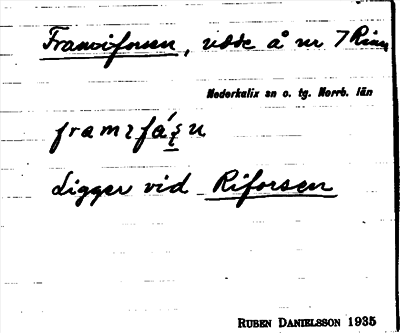 Framriforsen, udde å nr 7 Rian
Nederkalix sn o. tg. Norrb. län
Ligger vid Riforsen
RUBEN DANIELSSON 1935